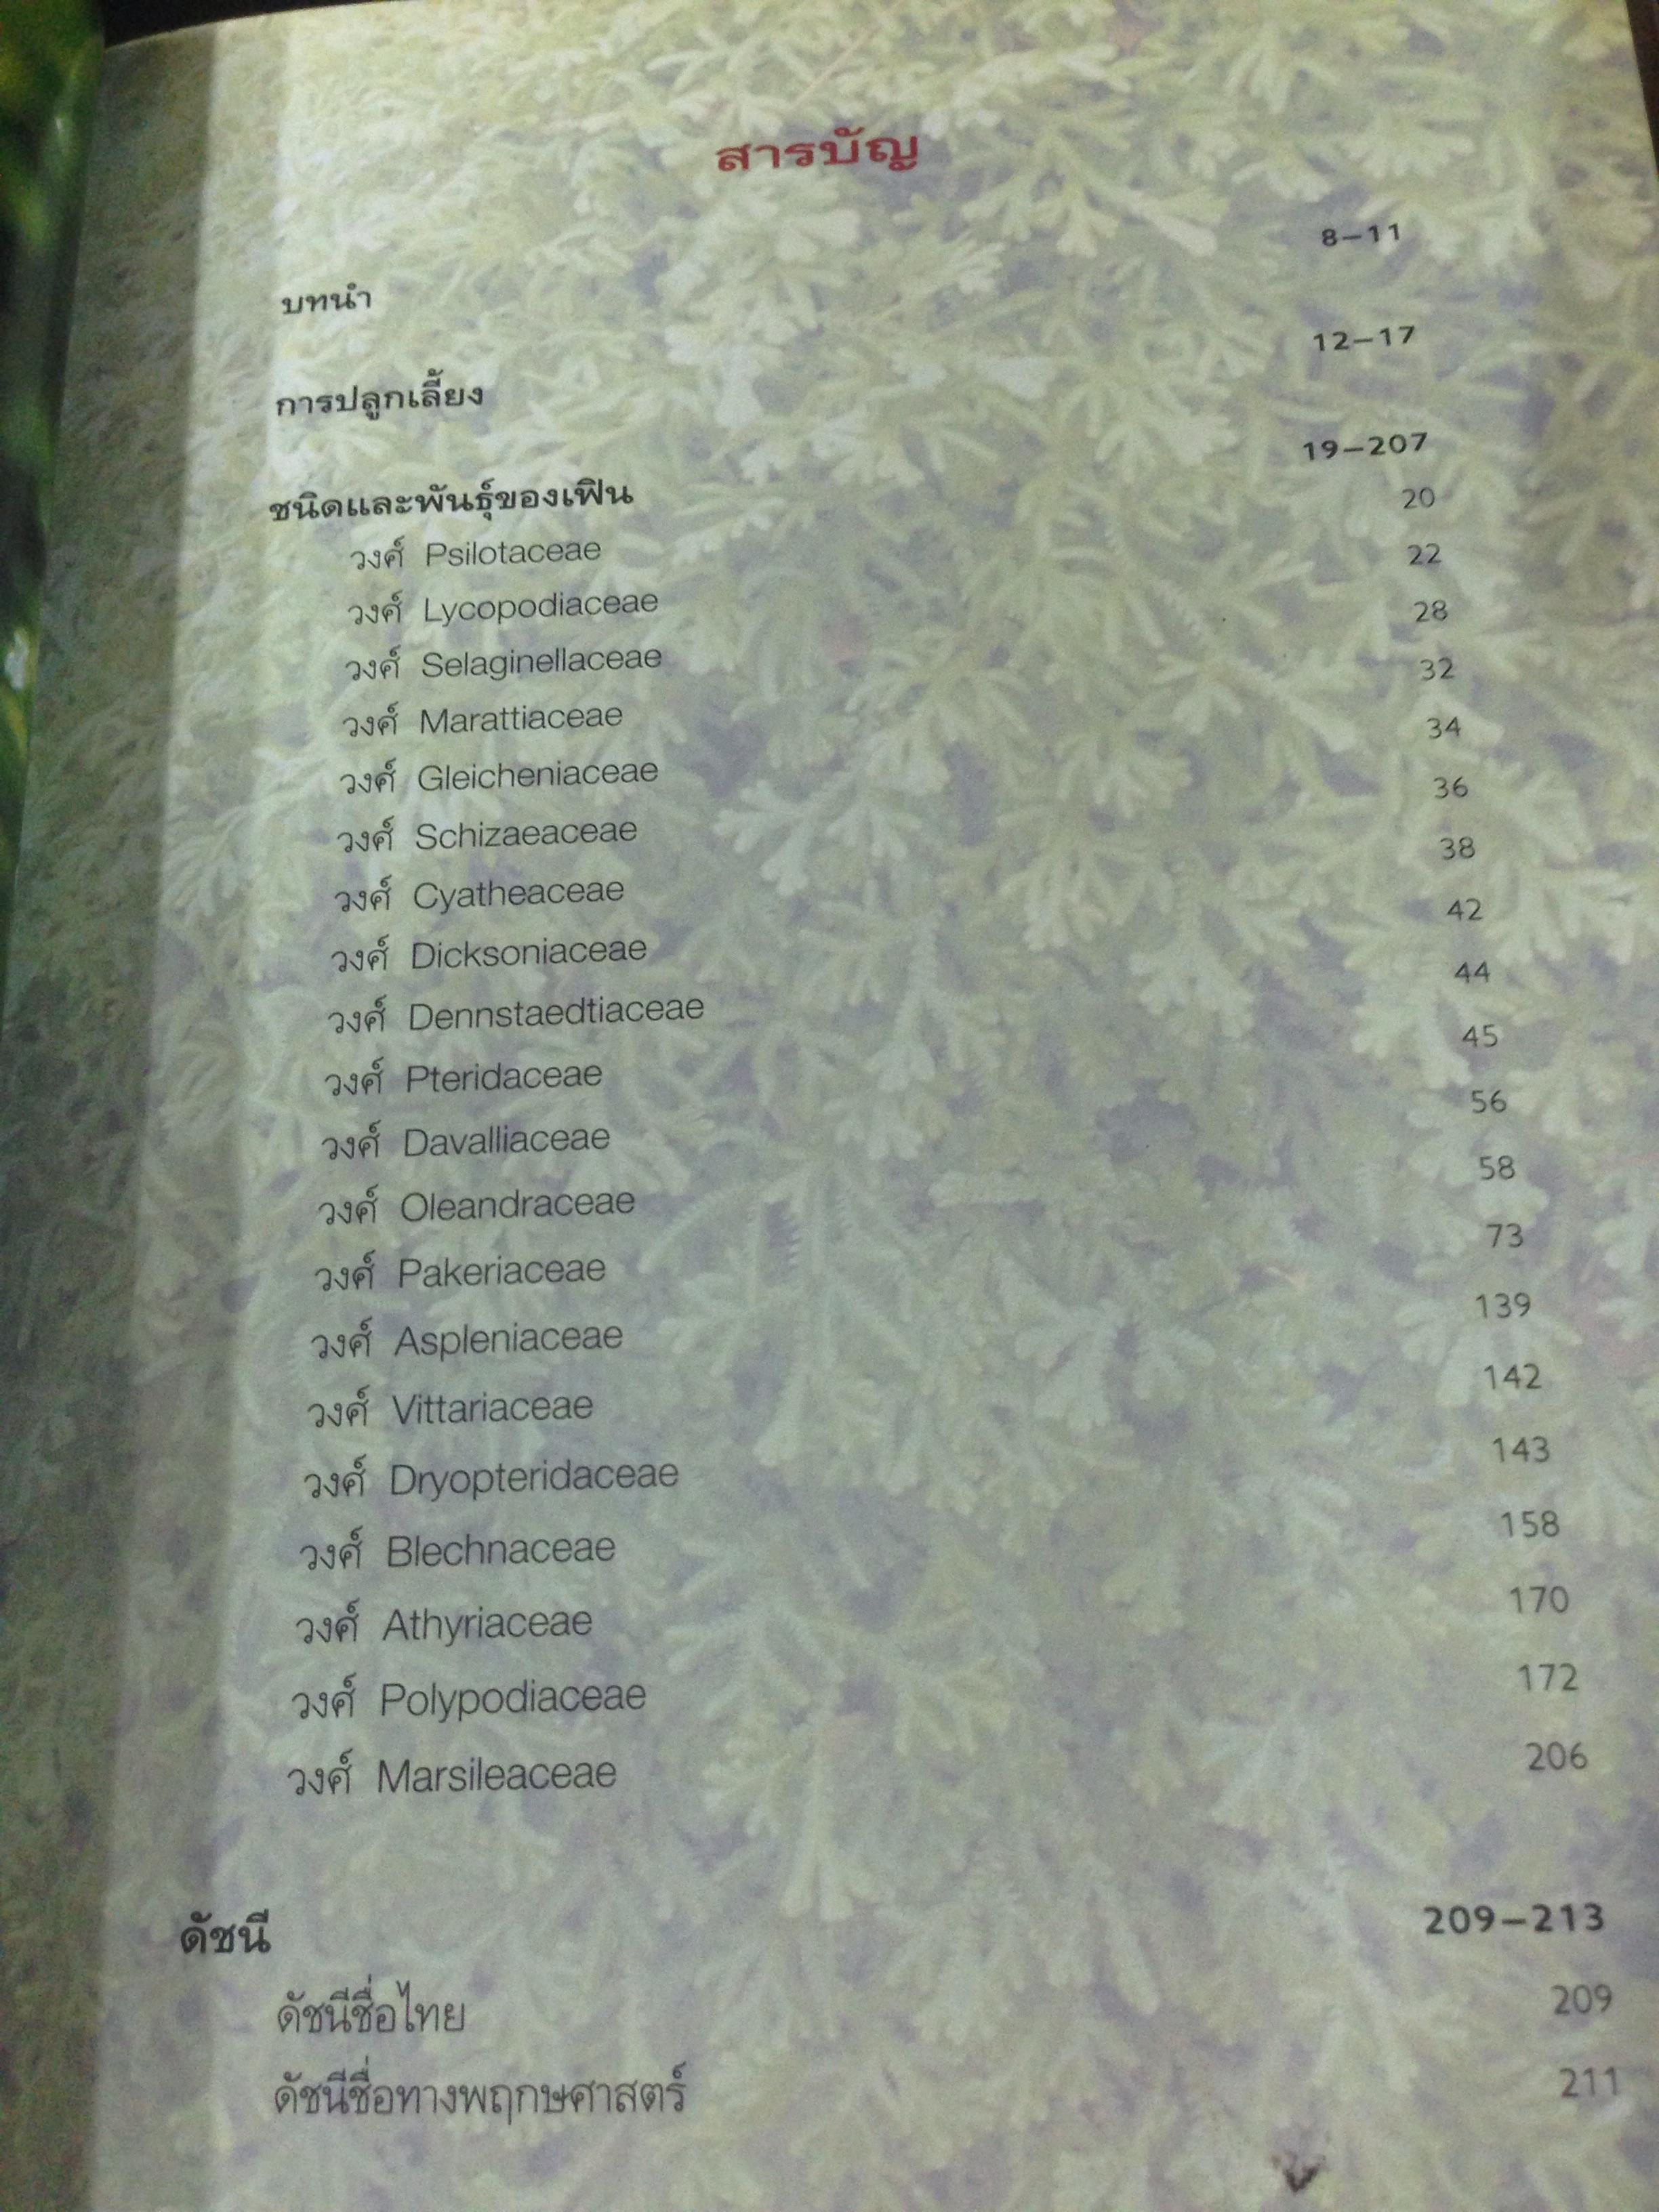 สารบัญ
บทนำ 8–11
การปลูกเลี้ยง 12–17
ชนิดและพันธุ์ของเฟิน 19–207
วงศ์ Psilotaceae 20
วงศ์ Lycopodiaceae 22
วงศ์ Selaginellaceae 28
วงศ์ Marattiaceae 32
วงศ์ Gleicheniaceae 34
วงศ์ Schizaeaceae 36
วงศ์ Cyatheaceae 38
วงศ์ Dicksoniaceae 42
วงศ์ Dennstaedtiaceae 44
วงศ์ Pteridaceae 45
วงศ์ Davalliaceae 56
วงศ์ Oleandraceae 58
วงศ์ Pakeriaceae 73
วงศ์ Aspleniaceae 139
วงศ์ Vittariaceae 142
วงศ์ Dryopteridaceae 143
วงศ์ Blechnaceae 158
วงศ์ Athyriaceae 170
วงศ์ Polypodiaceae 172
วงศ์ Marsileaceae 206
ดัชนี 209–213
ดัชนีชื่อไทย 209
ดัชนีชื่อทางพฤกษศาสตร์ 211